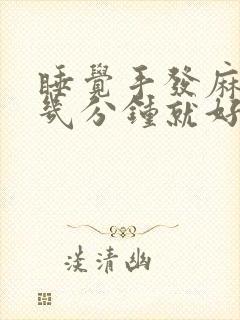 睡覺手發麻
幾分鐘就好
淡清幽